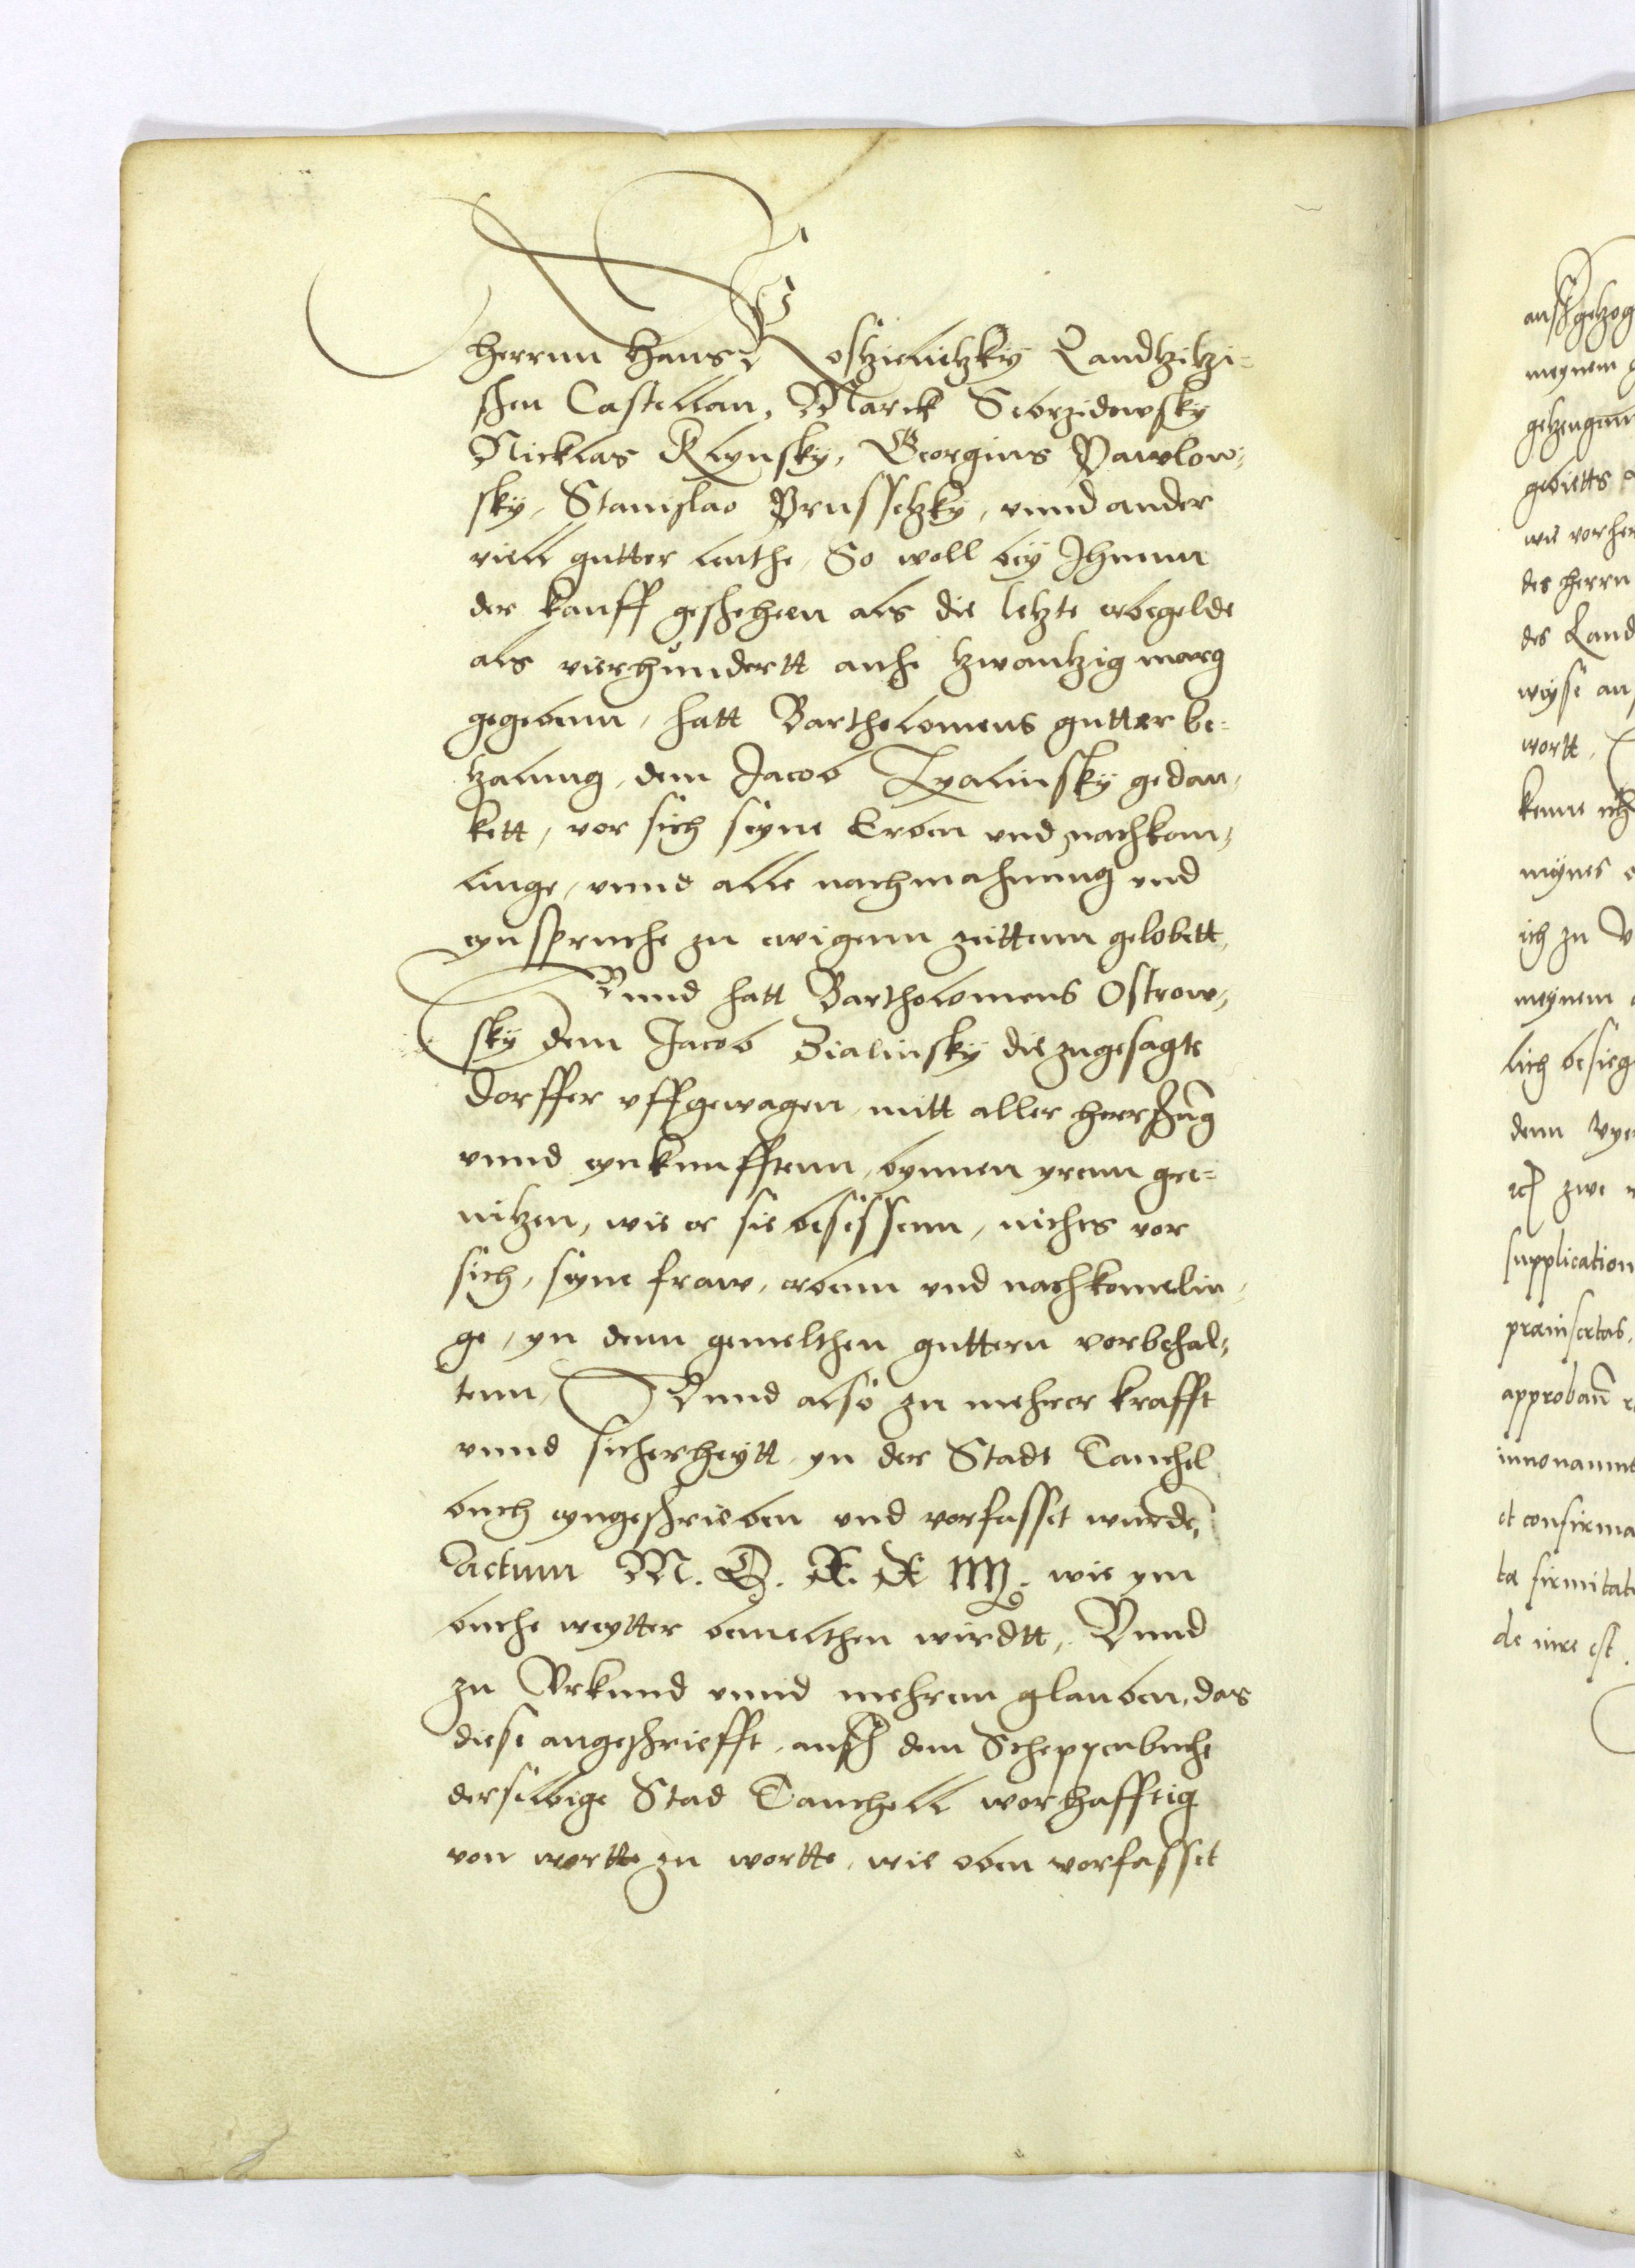 herrnn Hans Kosztzieletzkÿ Landtzitzi-
schen Castellan, Marck Sebrzidowsky
Nicklas Klynsky, Georgius Pawlow-
sky, Stanislao Prussetzky, vnnd ander
viell gutter leuthe, So woll beÿ Ihnenn
der kauff geschehenn als die letzte erbegelde
als vierhundertt auch tzwantzig marg
gegebenn, hatt Bartholomeus gutter be-
tzalung, dem Jacob Zyalinsky gedan-
kett, vor sich seyne Erben vnd nachkom-
linge, vnnd alle nachmahnung vnd
eynspruche zu ewigenn zeittenn gelobett,
Vnnd hatt Bartholomeus Ostrow-
sky dem Jacob Zialinsky die zugesagte
dorffer vffgewagen, mitt aller herrschung
vnnd eynkunfftenn, bynnen yrenn gre-
nitzen, wie er sie besessenn, nichts vor
sich, seyne fraw, erbenn vnd nachkomelin-
ge, yn denn gemelthen guttern vorbehal-
tenn, Vnnd also zu mehrer krafft
vnnd sicherheytt, yn der Stadt Tauchel
buch eyngeschrieben vnd vorfasset wurde,
Actum M. D. X. X IIII. wie ym
buche weytter bemelthen wirdtt, Vnnd
zu Vrkund vnnd mehrenn glauben, das
diese angeschriefft, ausz dem Scheppenbuche
derselbige Stad Tauchell worhafftig
von wortte zu wortte, wie oben vorfasset
meynem
des herrn
des Land
wortt,
ich zu
meynem
denn
zwe
supplication
præinsertas,
approband
innouand
et confirma
ta firmitat
de iure est.